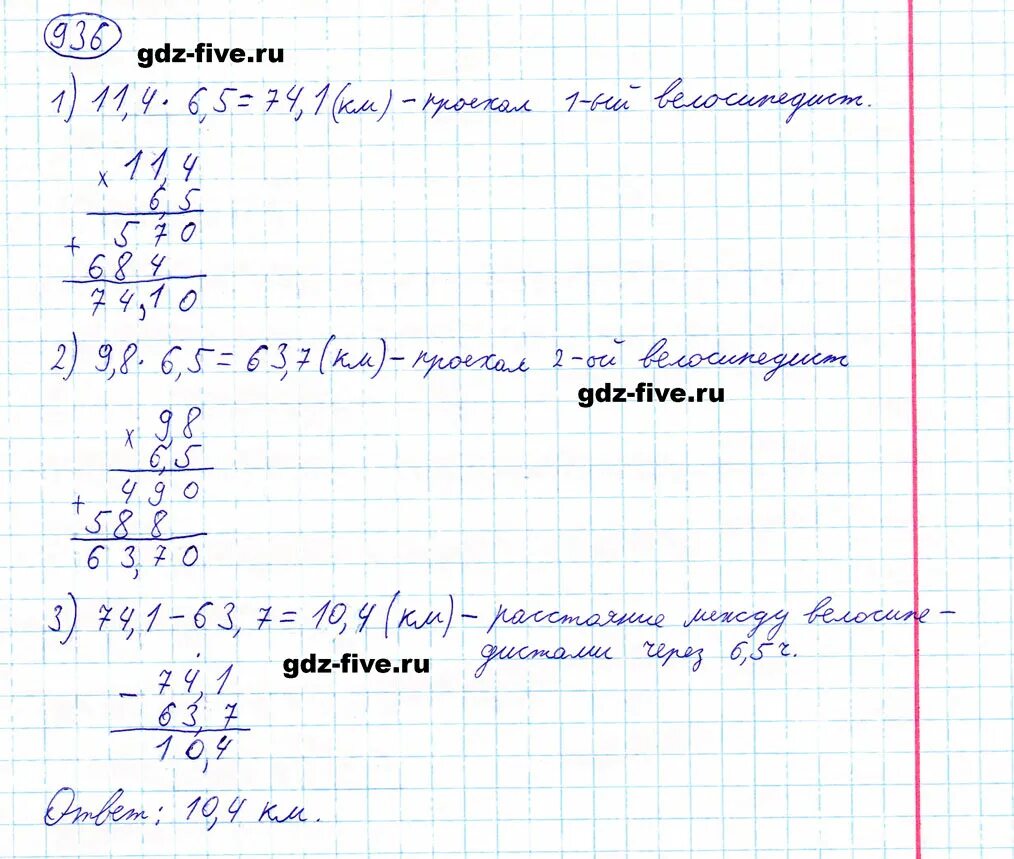 936
gdz-five.ru
1) 11,4 · 6,5 = 74,1 (км) – проехал 1-ый велосипедист.
х 11,4
6,5
+ 570
684
74,10
2) 9,8 · 6,5 = 63,7 (км) – проехал 2-ой велосипедист
gdz-five.ru
х 9,8
6,5
+ 490
588
63,70
3) 74,1 – 63,7 = 10,4 (км) – расстояние между велосипе-
дистами через 6,5 ч.
gdz-five.ru
– 74,1
63,7
10,4
Ответ: 10,4 км.